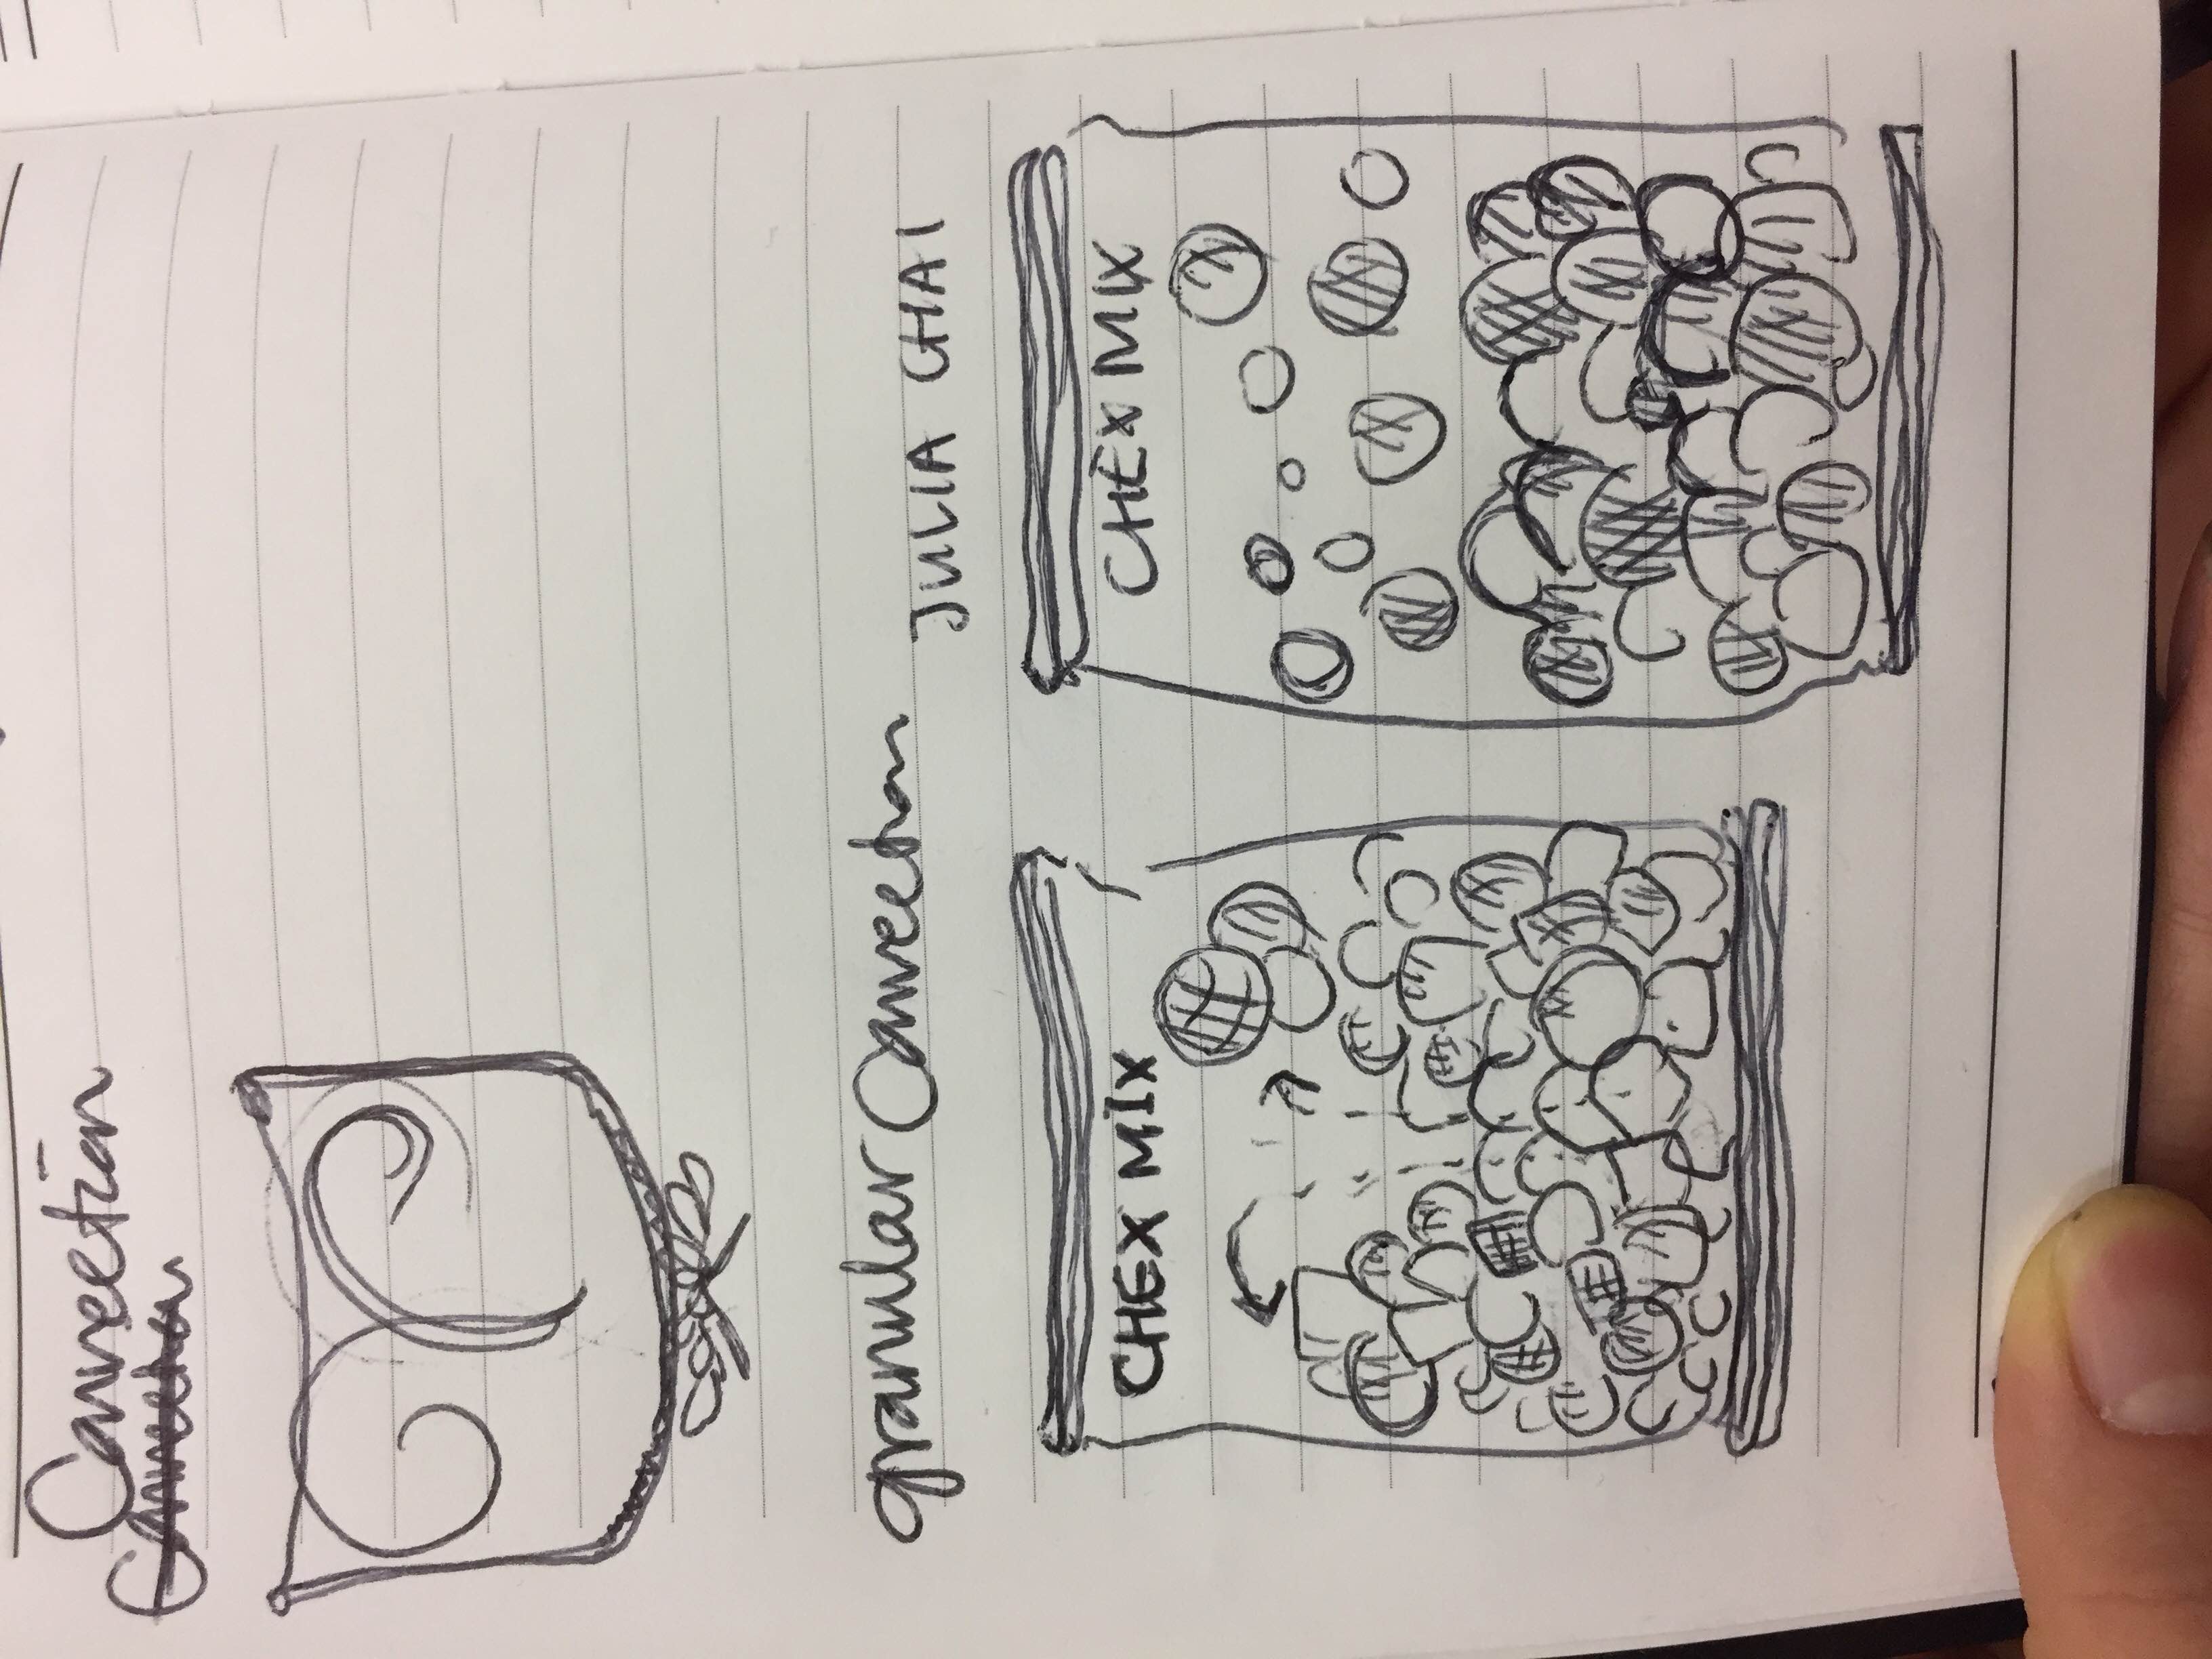 Convection
Convection
granular Convection
JULIA CHAI
CHEX MIX
CHEX MIX